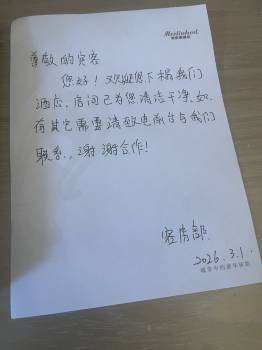 尊敬的宾客
您好！欢迎您下榻我们
酒店，房间已为您清洁干净，如
有其它需要请致电前台与我们
联系，谢谢合作！
客房部
2026.3.1